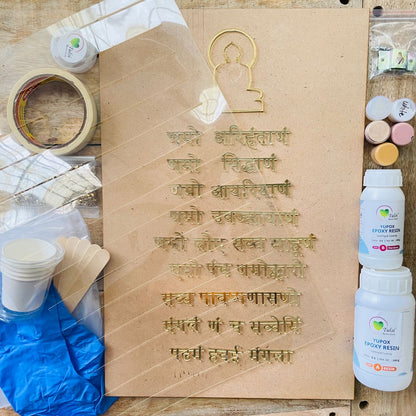 णमो अरिहंताणं
णमो सिद्धाणं
णमो आयरियाणं
णमो उवज्झायाणं
णमो लोए सव्व साहूणं
एसो पंच णमोक्कारो
सव्व पावप्पणासणो
मंगला णं च सव्वेसिं
पढमं हवई मंगलं
YUPOX
EPOXY RESIN
YUPOX
EPOXY RESIN
A RESIN